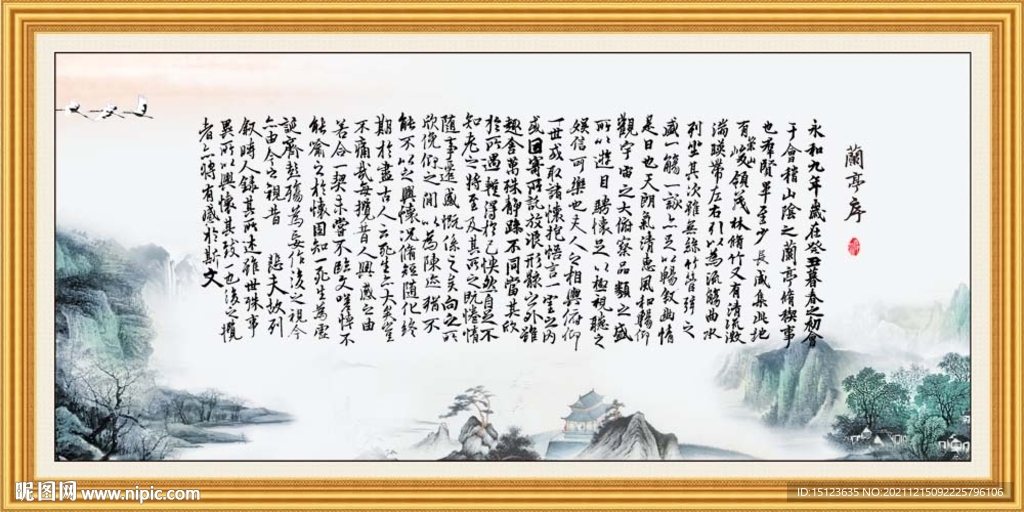 蘭亭序
永和九年歲在癸丑暮春之初會
于會稽山陰之蘭亭脩稧事
也羣賢畢至少長咸集此地
有崇山峻領茂林脩竹又有清流激
湍暎帶左右引以為流觴曲水
列坐其次雖無絲竹管弦之
盛一觴一詠亦足以暢敘幽情
是日也天朗氣清惠風和暢仰
觀宇宙之大俯察品類之盛
所以遊目騁懷足以極視聽之
娛信可樂也夫人之相與俯仰
一世或取諸懷抱悟言一室之內
或因寄所託放浪形骸之外雖
趣舍萬殊靜躁不同當其欣
於所遇輒得於己怏然自足不
知老之將至及其所之既惓情
隨事遷感慨係之矣向之所
欣俛仰之間以為陳迹猶不
能不以之興懷況脩短隨化終
期於盡古人云死生亦大矣豈
不痛哉每攬昔人興感之由
若合一契未嘗不臨文嗟悼不
能喻之於懷固知一死生為虛
誕齊彭殤為妄作後之視今
亦由今之視昔 悲夫故列
敘時人錄其所述雖世殊事
異所以興懷其致一也後之攬
者亦將有感於斯文
昵图网 www.nipic.com
ID:15123635 NO:20211215092225796106